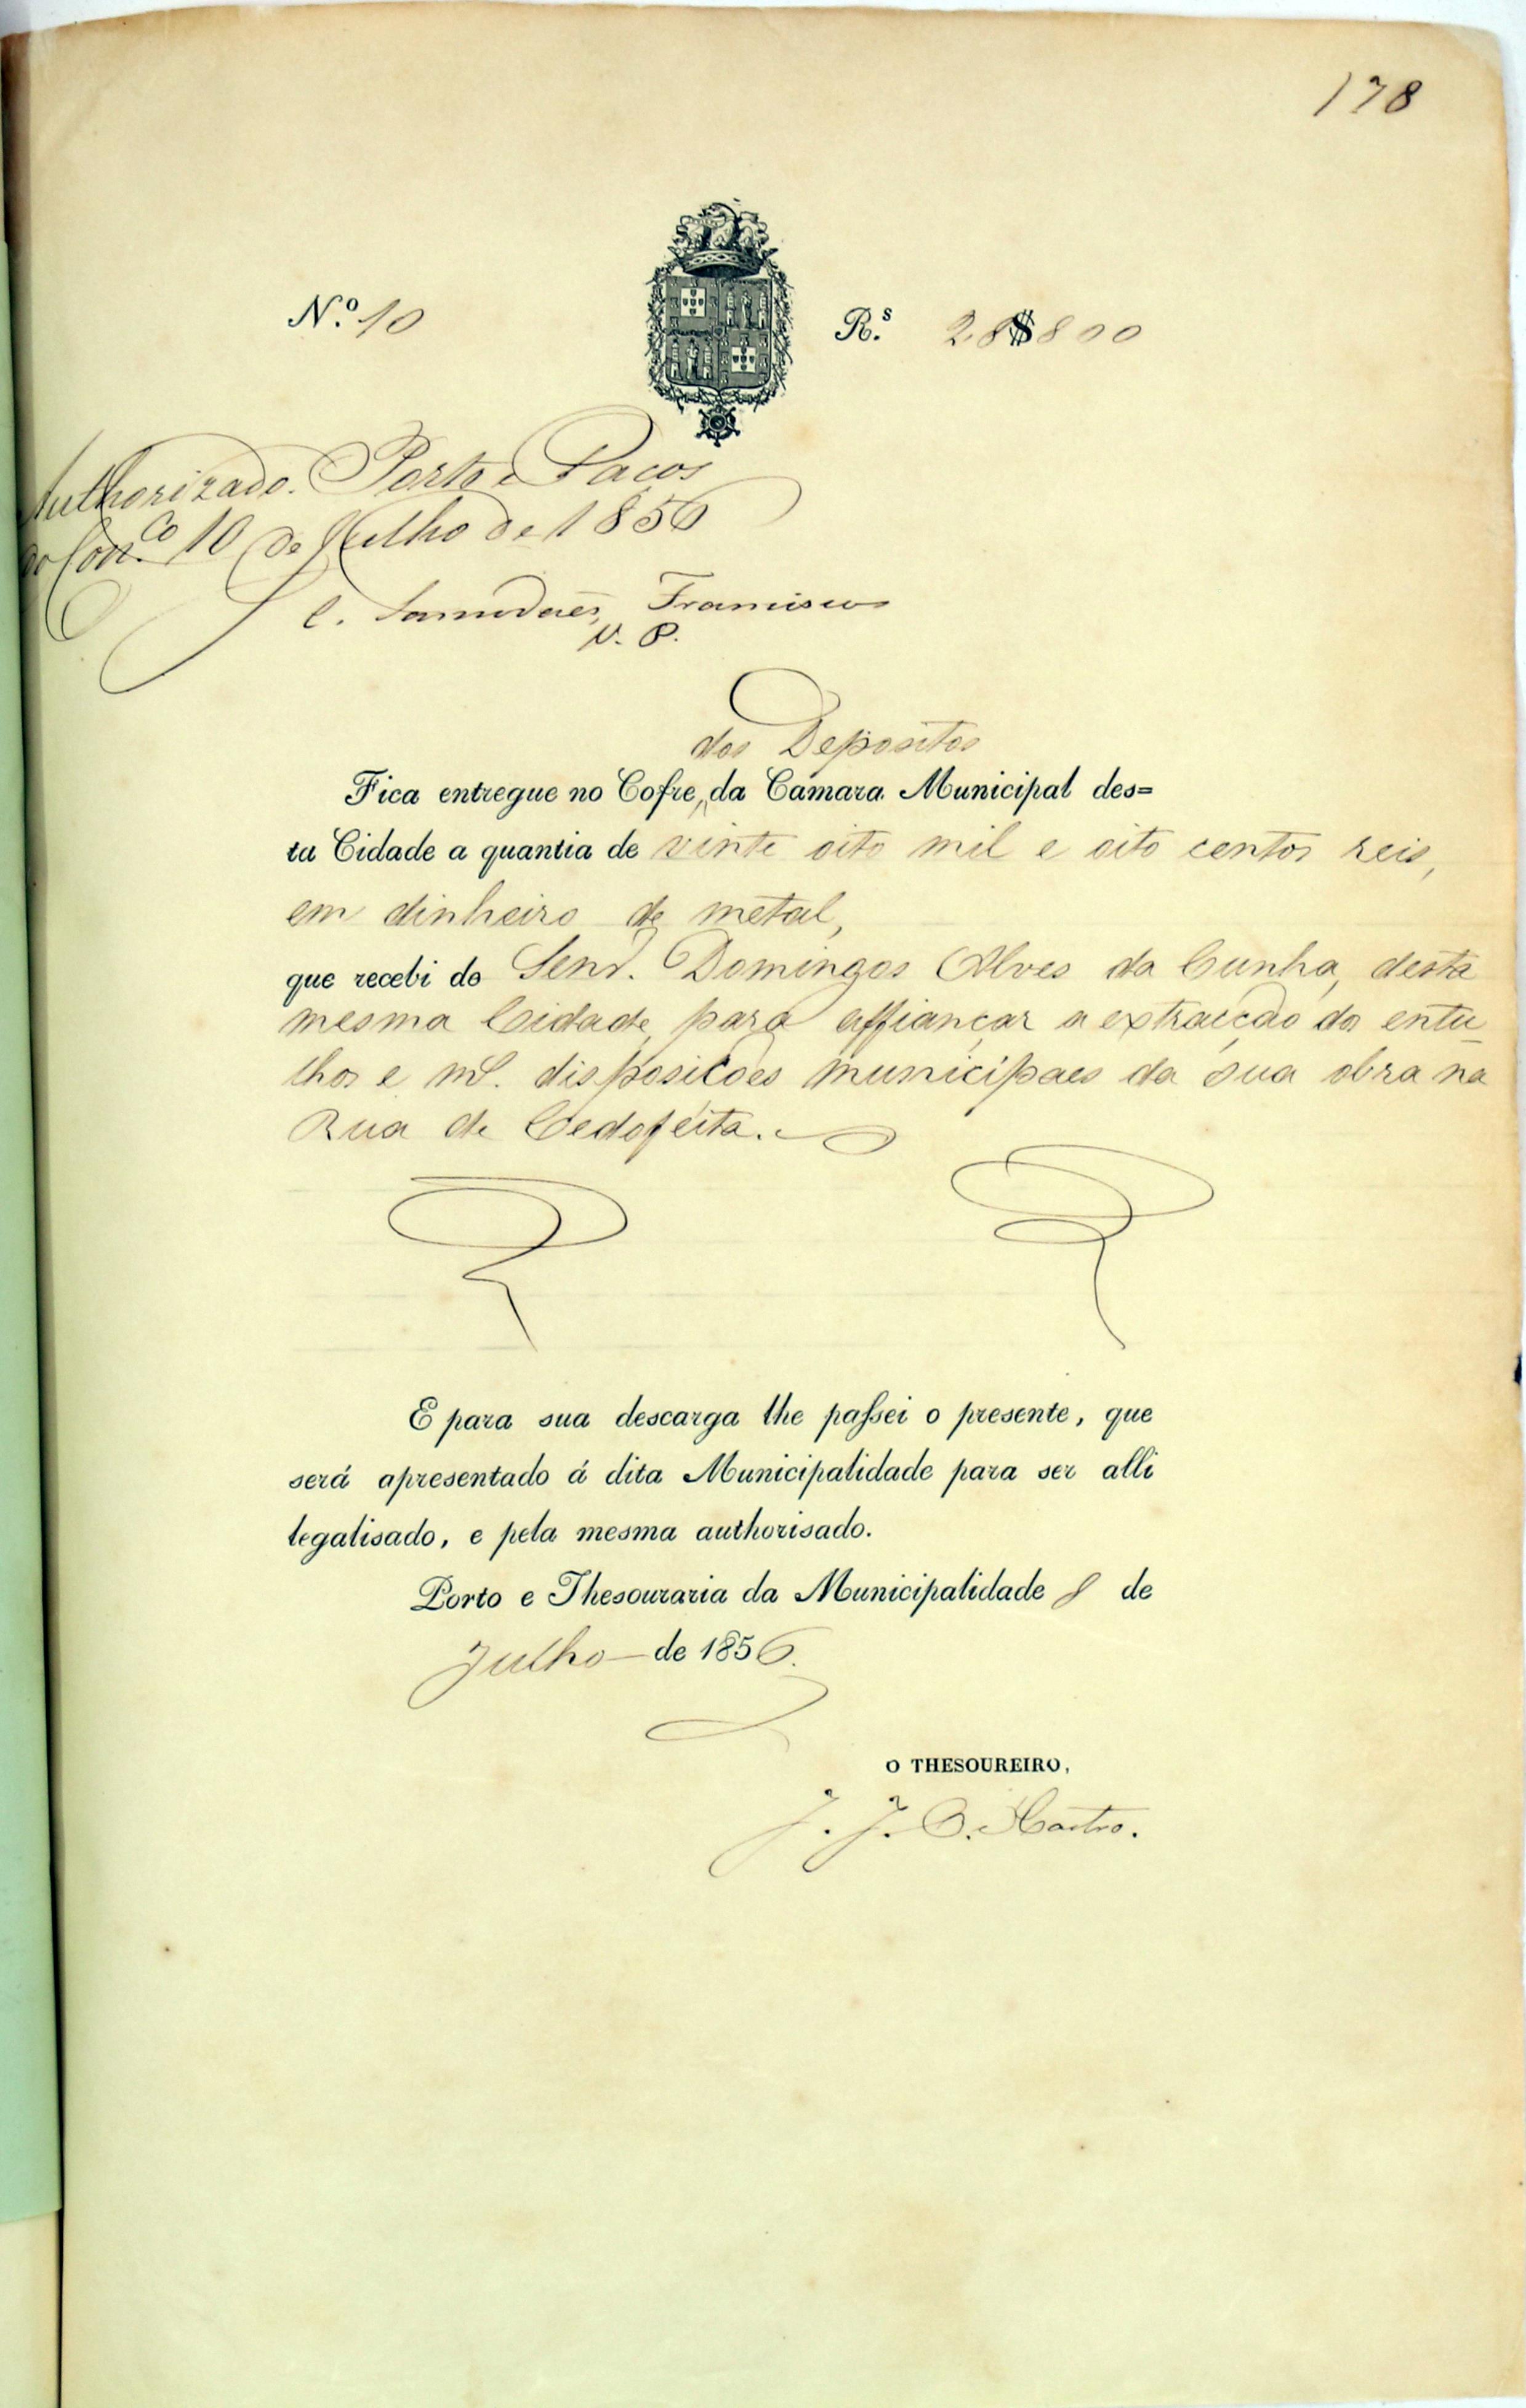 178
N.º 10
R.s 28$800
Authorizado. Porto e Paços
do Con.co 10 de Julho de 1856
C. Samodães, Francisco
V. P.
dos Depositos
Fica entregue no Cofre, da Camara Municipal des=
ta Cidade a quantia de vinte oito mil e oito centos reis,
em dinheiro de metal,
que recebi do Senr. Domingos Alves da Cunha, desta
mesma Cidade, para affiançar a extracção do entu
lhos e disposicões municipaes da sua obra na
Rua de Cedofeita.
E para sua descarga lhe passei o presente, que
será apresentado á dita Municipalidade para ser alli
legalisado, e pela mesma authorisado.
Porto e Thesouraria da Municipalidade 8 de
Julho de 1856.
O THESOUREIRO,
J. J. C. Castro.